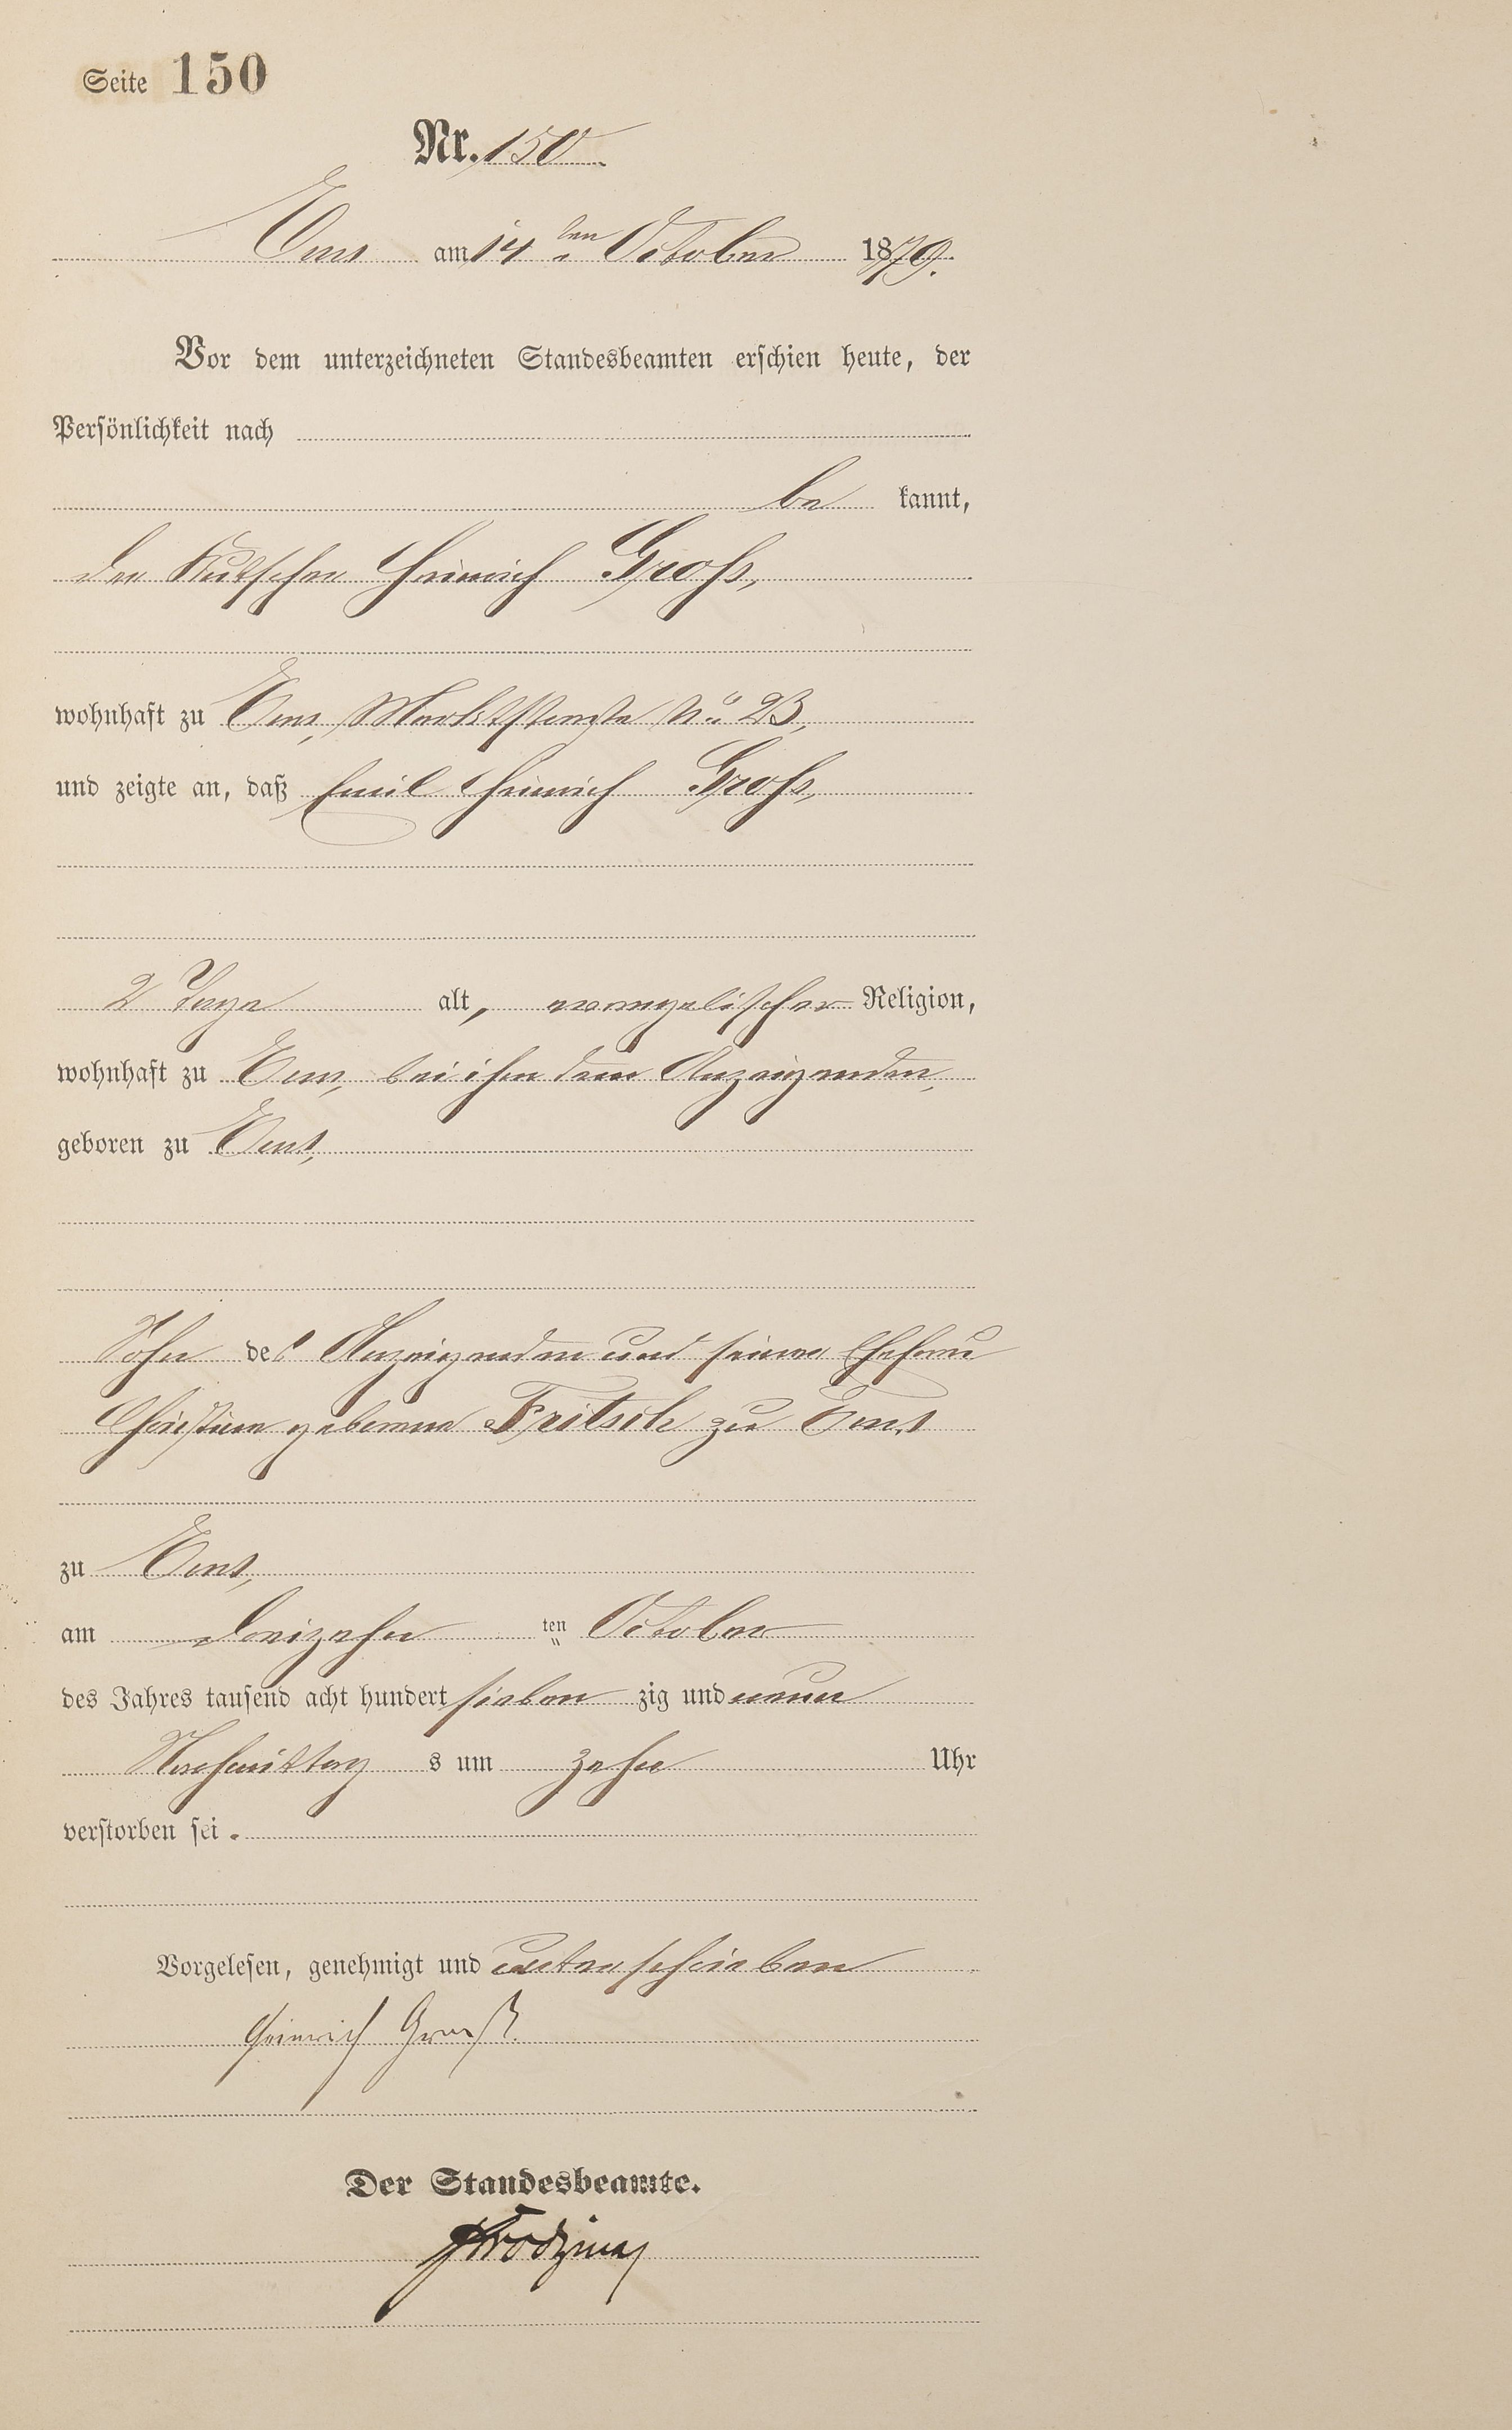 Seite 150
Nr. 150
Ems am 14ten October 1879.
Vor dem unterzeichneten Standesbeamten erschien heute, der
Persönlichkeit nach
be kannt,
der Kutscher Heinrich Groß,
wohnhaft zu Ems, Marktstraße No 23,
und zeigte an, daß Emil Heinrich Groß,
2 Tage alt, evangelischer Religion,
wohnhaft zu Ems, bei ihm dem Anzeigenden,
geboren zu Ems,
Sohn des Anzeigenden und seiner Ehefrau
Christine geborene Fritsch zu Ems
zu Ems,
am dreizehn ten October
des Jahres tausend acht hundert sieben zig und neun
Nachmittag s um zehn Uhr
verstorben sei.
Vorgelesen, genehmigt und unterschrieben
Heinrich Groß.
Der Standesbeamte.